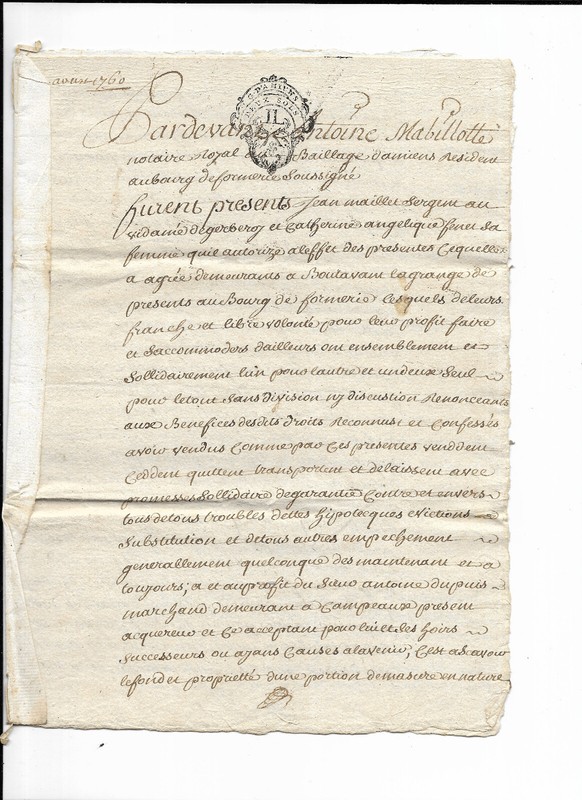 avril 1760
G. D'AMIENS
DEUX SOLS
Pardevant Antoine Mabillotte
notaire Royal Baillage d'amiens Resident
au bourg de formerie Soussigné
furent presents Jean maillet Sergent au
vidamé degerberoy et Catherine angelique fenet Sa
femme quil autorize aleffet des presentes Cequelle
a agrée demeurants a Boutavant Lagrange de
presents au Bourg de formerie lesquels deleurs
franche et libre volonté pour leur profit faire
et Saccommoder dailleurs ont ensemblement et
Sollidairement lun pour lautre et un deux Seul
pour letout Sans division ny discution Renonceants
aux Benefices desdits droits Reconnus et Confessés
avoir vendus Comme par Ces presentes vendent
Ceddent quittent transportent et delaissent avec
promesses Sollidaire degarantie Contre et envers
tous detous troubles dettes hipotecques evictions
Substitution et detous autres empechement
generallement quelconque des maintenant et a
toujours; a et au profit du Sieur antoine dupuis
marchand demeurant a Campeaux present
acquereur et Ce acceptant pour lui et Ses hoirs
Successeurs ou ayans Causes alavenir, C'est ascavoir
lefond et proprietté dune portion demasure en nature